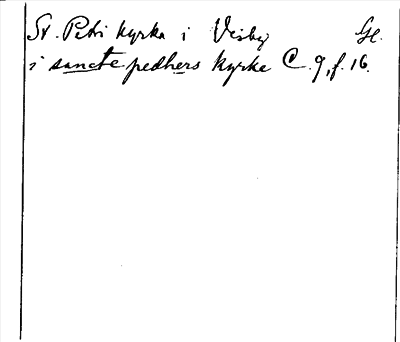 St. Petri kyrka i Visby Gl.
i sancte pedhers kyrke C. 9, f. 16.